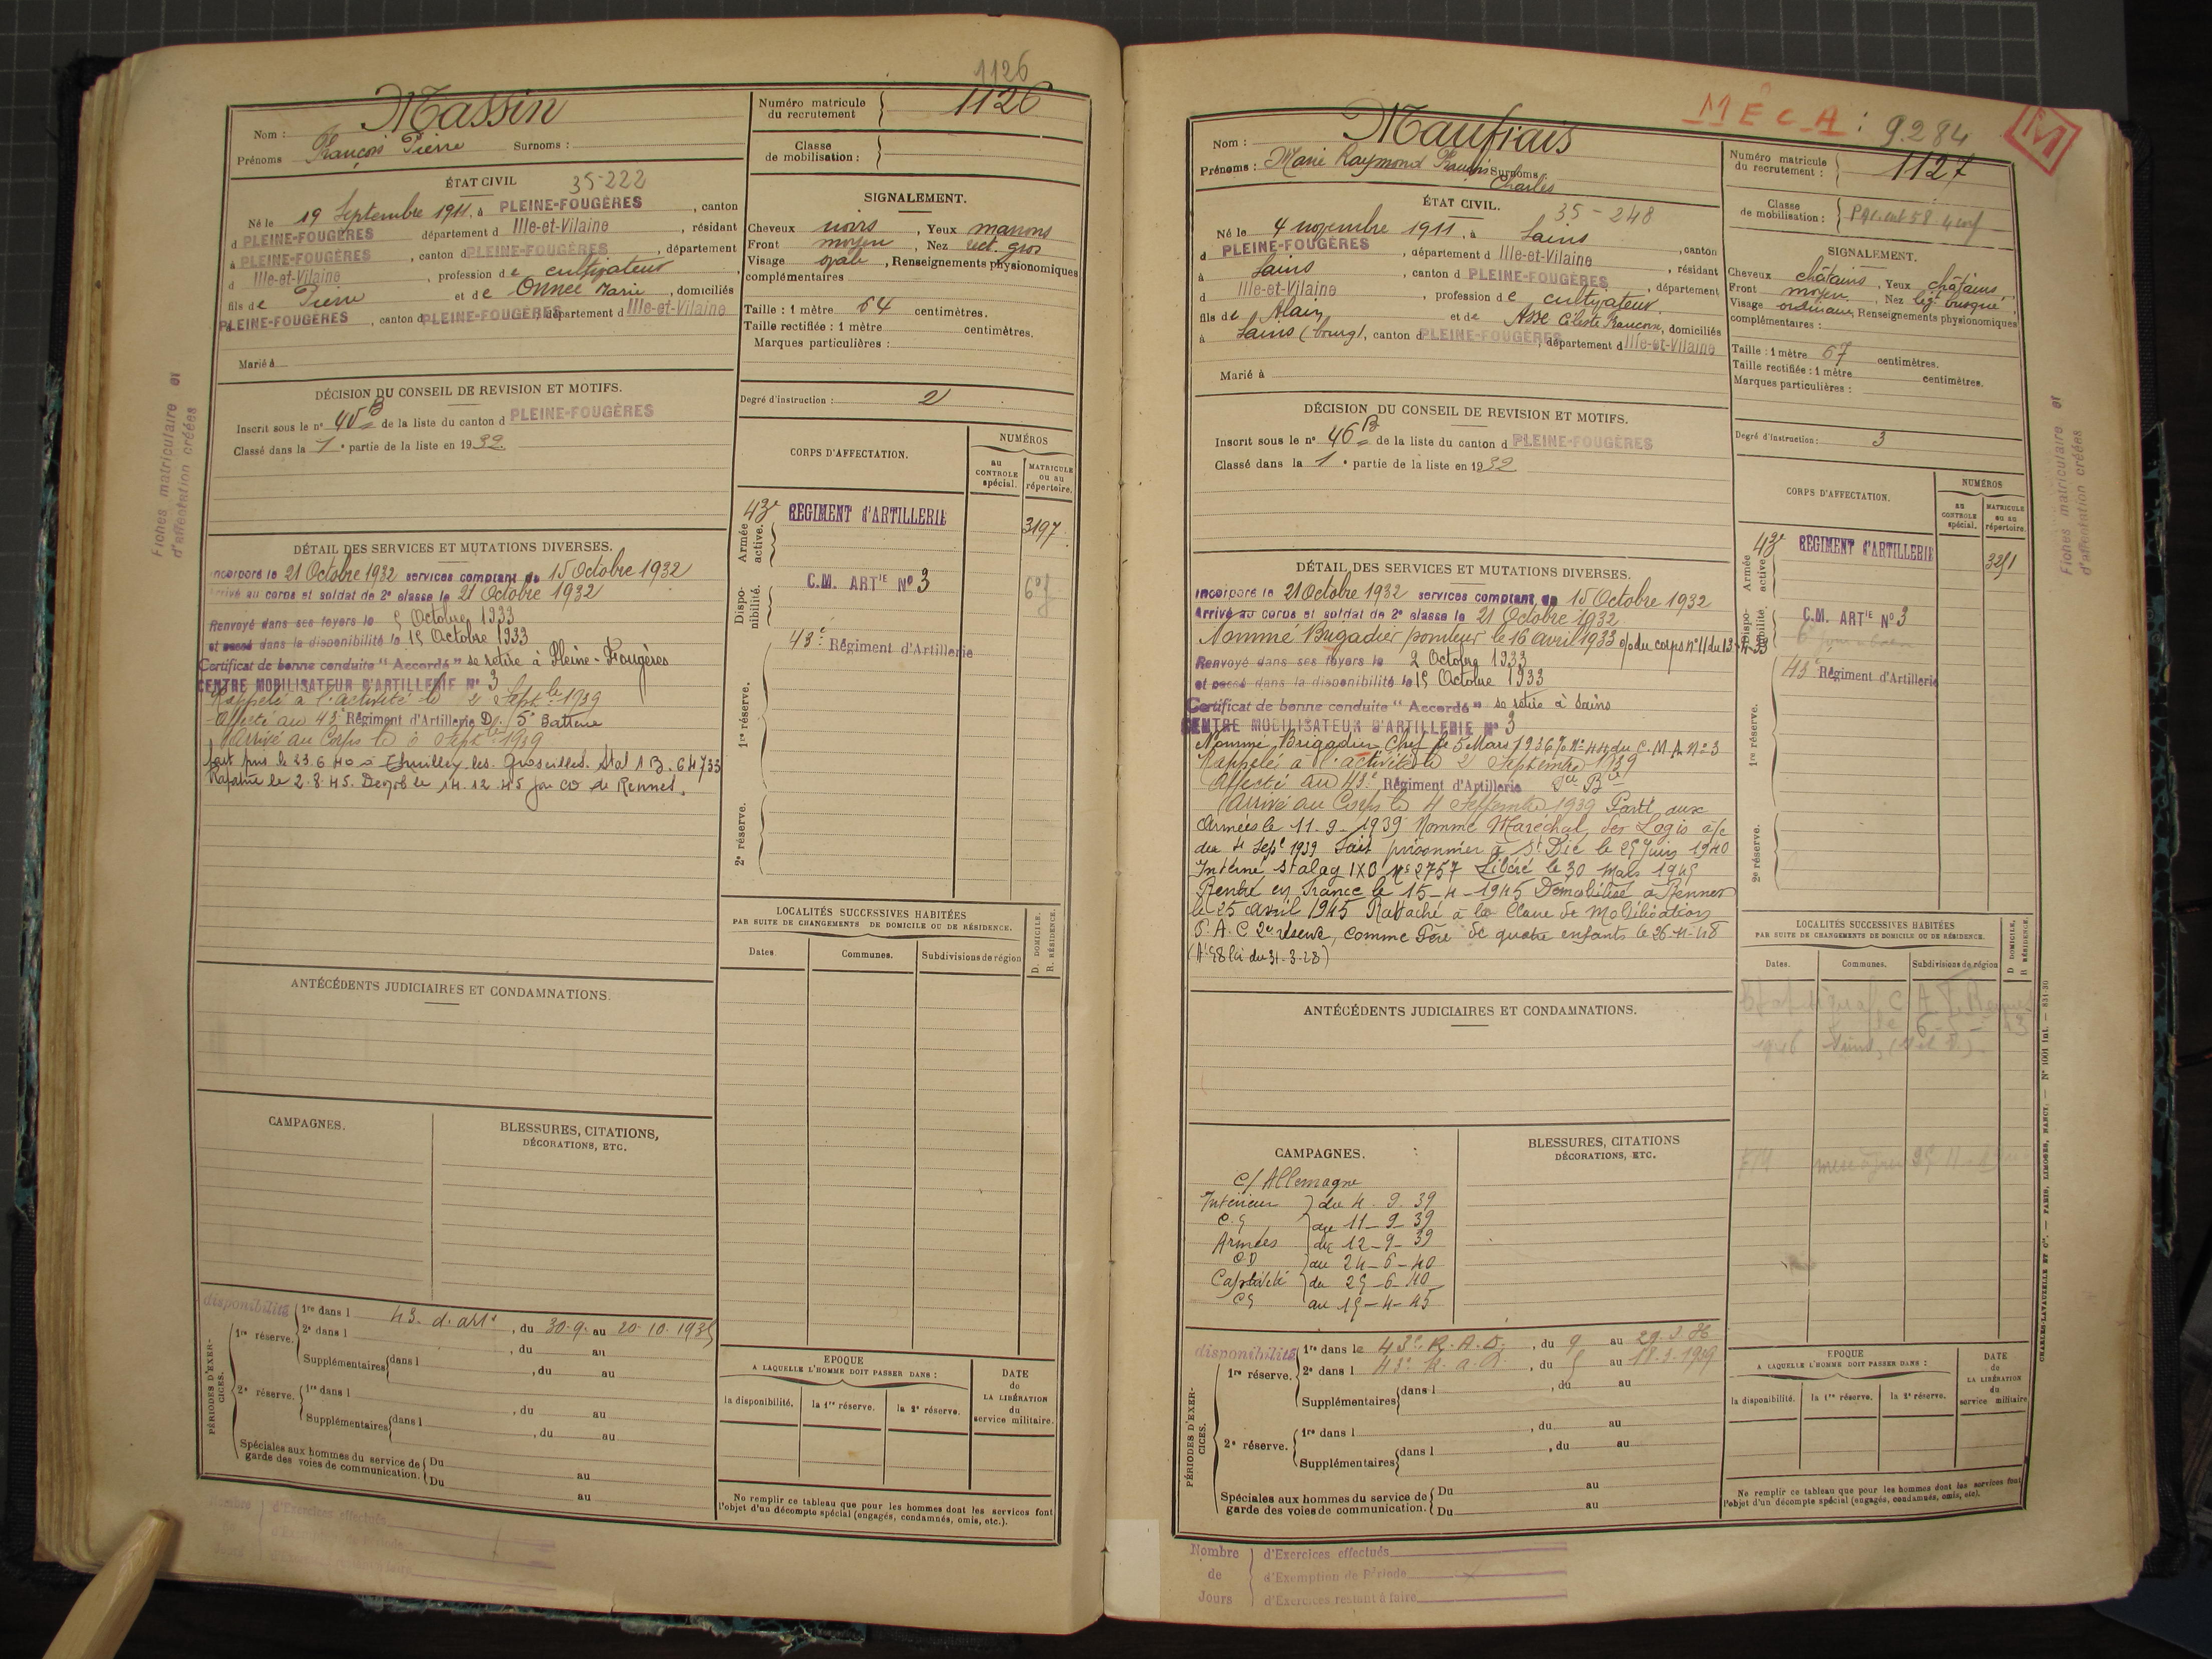 1126
Nom : Massin
Prénoms François Pierre Surnoms :
Numéro matricule du recrutement 1126
Classe de mobilisation :
ÉTAT CIVIL 35-222
Né le 19 Septembre 1911, à PLEINE-FOUGÈRES, canton
d PLEINE-FOUGÈRES département d Ille-et-Vilaine, résidant
à PLEINE-FOUGÈRES, canton d PLEINE-FOUGÈRES, département
d Ille-et-Vilaine, profession de cultivateur
fils de Pierre et de Onnée Marie, domiciliés
PLEINE-FOUGÈRES, canton d PLEINE-FOUGÈRES département d Ille-et-Vilaine
Marié à
SIGNALEMENT.
Cheveux noirs, Yeux marrons
Front moyen, Nez rect. gros
Visage ovale, Renseignements physionomiques
complémentaires
Taille : 1 mètre 64 centimètres.
Taille rectifiée : 1 mètre centimètres.
Marques particulières :
DÉCISION DU CONSEIL DE REVISION ET MOTIFS.
Inscrit sous le n° 45 B de la liste du canton d PLEINE-FOUGÈRES
Classé dans la 1e partie de la liste en 1932
Degré d'instruction : 2
CORPS D'AFFECTATION.
NUMÉROS
au CONTROLE spécial.
MATRICULE ou au répertoire.
Armée active.
43e RÉGIMENT d'ARTILLERIE 3197
Disponibilité.
C.M. ARTIE N° 3
1re réserve.
43e Régiment d'Artillerie
2e réserve.
Fiches matriculaire et
d'affectation créées
DÉTAIL DES SERVICES ET MUTATIONS DIVERSES.
Incorporé le 21 Octobre 1932 services comptant du 15 Octobre 1932
Arrivé au corps et soldat de 2e classe le 21 Octobre 1932
Renvoyé dans ses foyers le 5 Octobre 1933
et passé dans la disponibilité le 15 Octobre 1933
Certificat de bonne conduite "Accordé" se retire à Pleine-Fougères
CENTRE MOBILISATEUR D'ARTILLERIE N° 3
Rappelé à l'activité le 2 Septbre 1939
Affecté au 43e Régiment d'Artillerie D. 5e Batterie
Arrivé au Corps le 3 Septbre 1939
fait pris le 23.6.40 à Thuilley les Groseilles. Stal 1 B. 64733
Rapatrié le 2.8.45. Démob le 14.12.45 par CD de Rennes.
LOCALITÉS SUCCESSIVES HABITÉES
PAR SUITE DE CHANGEMENTS DE DOMICILE OU DE RÉSIDENCE.
Dates. Communes. Subdivisions de région
D. DOMICILE.
R. RÉSIDENCE.
ANTÉCÉDENTS JUDICIAIRES ET CONDAMNATIONS.
CAMPAGNES.
BLESSURES, CITATIONS,
DÉCORATIONS, ETC.
PÉRIODES D'EXERCICES.
disponibilité
1re réserve. 1re dans l 43. d. art, du 30.9. au 20.10.1935
2e dans l, du au
Supplémentaires dans l, du au
2e réserve. 1re dans l, du au
Supplémentaires dans l, du au
Spéciales aux hommes du service de garde des voies de communication. Du au
Du au
EPOQUE
A LAQUELLE L'HOMME DOIT PASSER DANS :
la disponibilité. la 1re réserve. la 2e réserve.
DATE
de
LA LIBÉRATION
du
service militaire.
Ne remplir ce tableau que pour les hommes dont les services font
l'objet d'un décompte spécial (engagés, condamnés, omis, etc.).
Nombre d'Exercices effectués
Jours
MÉCA : 9284
M
Nom : Maufrais
Prénoms : Marie Raymond François Surnoms :
Charles
Numéro matricule du recrutement : 1127
Classe de mobilisation :
ÉTAT CIVIL. 35-248
Né le 4 novembre 1911, à Sains
d PLEINE-FOUGÈRES, département d Ille-et-Vilaine, canton
à Sains, canton d PLEINE-FOUGÈRES, résidant
d Ille-et-Vilaine, profession de cultivateur, département
fils de Alain et de Asse Céleste Françoise, domiciliés
à Sains (bourg), canton d PLEINE-FOUGÈRES, département d Ille-et-Vilaine
Marié à
SIGNALEMENT.
Cheveux châtains, Yeux châtains
Front moyen, Nez légt busqué
Visage ordinaire, Renseignements physionomiques
complémentaires :
Taille : 1 mètre 67 centimètres.
Taille rectifiée : 1 mètre centimètres.
Marques particulières :
DÉCISION DU CONSEIL DE REVISION ET MOTIFS.
Inscrit sous le n° 46 B de la liste du canton d PLEINE-FOUGÈRES
Classé dans la 1e partie de la liste en 1932
Degré d'instruction : 3
CORPS D'AFFECTATION.
NUMÉROS
au CONTROLE spécial.
MATRICULE ou au répertoire.
Armée active.
43e RÉGIMENT d'ARTILLERIE 3251
Disponibilité.
C.M. ARTIE N° 3
1re réserve.
43e Régiment d'Artillerie
2e réserve.
Fiches matriculaire et
d'affectation créées
DÉTAIL DES SERVICES ET MUTATIONS DIVERSES.
Incorporé le 21 Octobre 1932 services comptant du 15 Octobre 1932
Arrivé au corps et soldat de 2e classe le 21 Octobre 1932
Nommé Brigadier pointeur le 16 avril 1933 o/ du corps n° 11 du 13-4-33
Renvoyé dans ses foyers le 2 Octobre 1933
et passé dans la disponibilité le 15 Octobre 1933
Certificat de bonne conduite "Accordé" se retire à Sains
CENTRE MOBILISATEUR D'ARTILLERIE N° 3
Nommé Brigadier Chef le 5 Mars 1936 % N° 44 du C.M.A. N° 3
Rappelé à l'activité le 2 Septembre 1939
Affecté au 43e Régiment d'Artillerie
Arrivé au Corps le 4 Septembre 1939 Parti aux
Armées le 11-9-1939 Nommé Maréchal des Logis à/c
du 4 Sept 1939 Fait prisonnier à St Dié le 25 Juin 1940
Interné Stalag IX B N° 2757 Libéré le 30 Mars 1945
Rentré en France le 15-4-1945 Démobilisé à Rennes
le 25 avril 1945 Rattaché à la Classe de Mobilisation
P.A.C 2e réserve, comme Père de quatre enfants le 26-11-48
(At 58 loi du 31-3-28)
LOCALITÉS SUCCESSIVES HABITÉES
PAR SUITE DE CHANGEMENTS DE DOMICILE OU DE RÉSIDENCE.
Dates. Communes. Subdivisions de région
D. DOMICILE,
R. RÉSIDENCE.
ANTÉCÉDENTS JUDICIAIRES ET CONDAMNATIONS.
CAMPAGNES.
C/ Allemagne
Intérieur du 4.9.39
C.S au 11-9-39
Armées du 12-9-39
CD au 24-6-40
Captivité du 25-6-40
CS au 15-4-45
BLESSURES, CITATIONS
DÉCORATIONS, ETC.
PÉRIODES D'EXERCICES.
disponibilité
1re réserve. 1re dans le 43e R.A.D., du 9 au 29.3.36
2e dans l 43e R.A.D., du 5 au 18.3.1939
Supplémentaires dans l, du au
2e réserve. 1re dans l, du au
Supplémentaires dans l, du au
Spéciales aux hommes du service de garde des voies de communication. Du au
Du au
EPOQUE
A LAQUELLE L'HOMME DOIT PASSER DANS :
la disponibilité. la 1re réserve. la 2e réserve.
DATE
de
LA LIBÉRATION
du
service militaire
Ne remplir ce tableau que pour les hommes dont les services font
l'objet d'un décompte spécial (engagés, condamnés, omis, etc).
Nombre d'Exercices effectués
de d'Exemption de Période
Jours d'Exercices restant à faire
CHARLES-LAVAUZELLE ET Cie. — PARIS, LIMOGES, NANCY. — N° 1001 Int. — 831-30